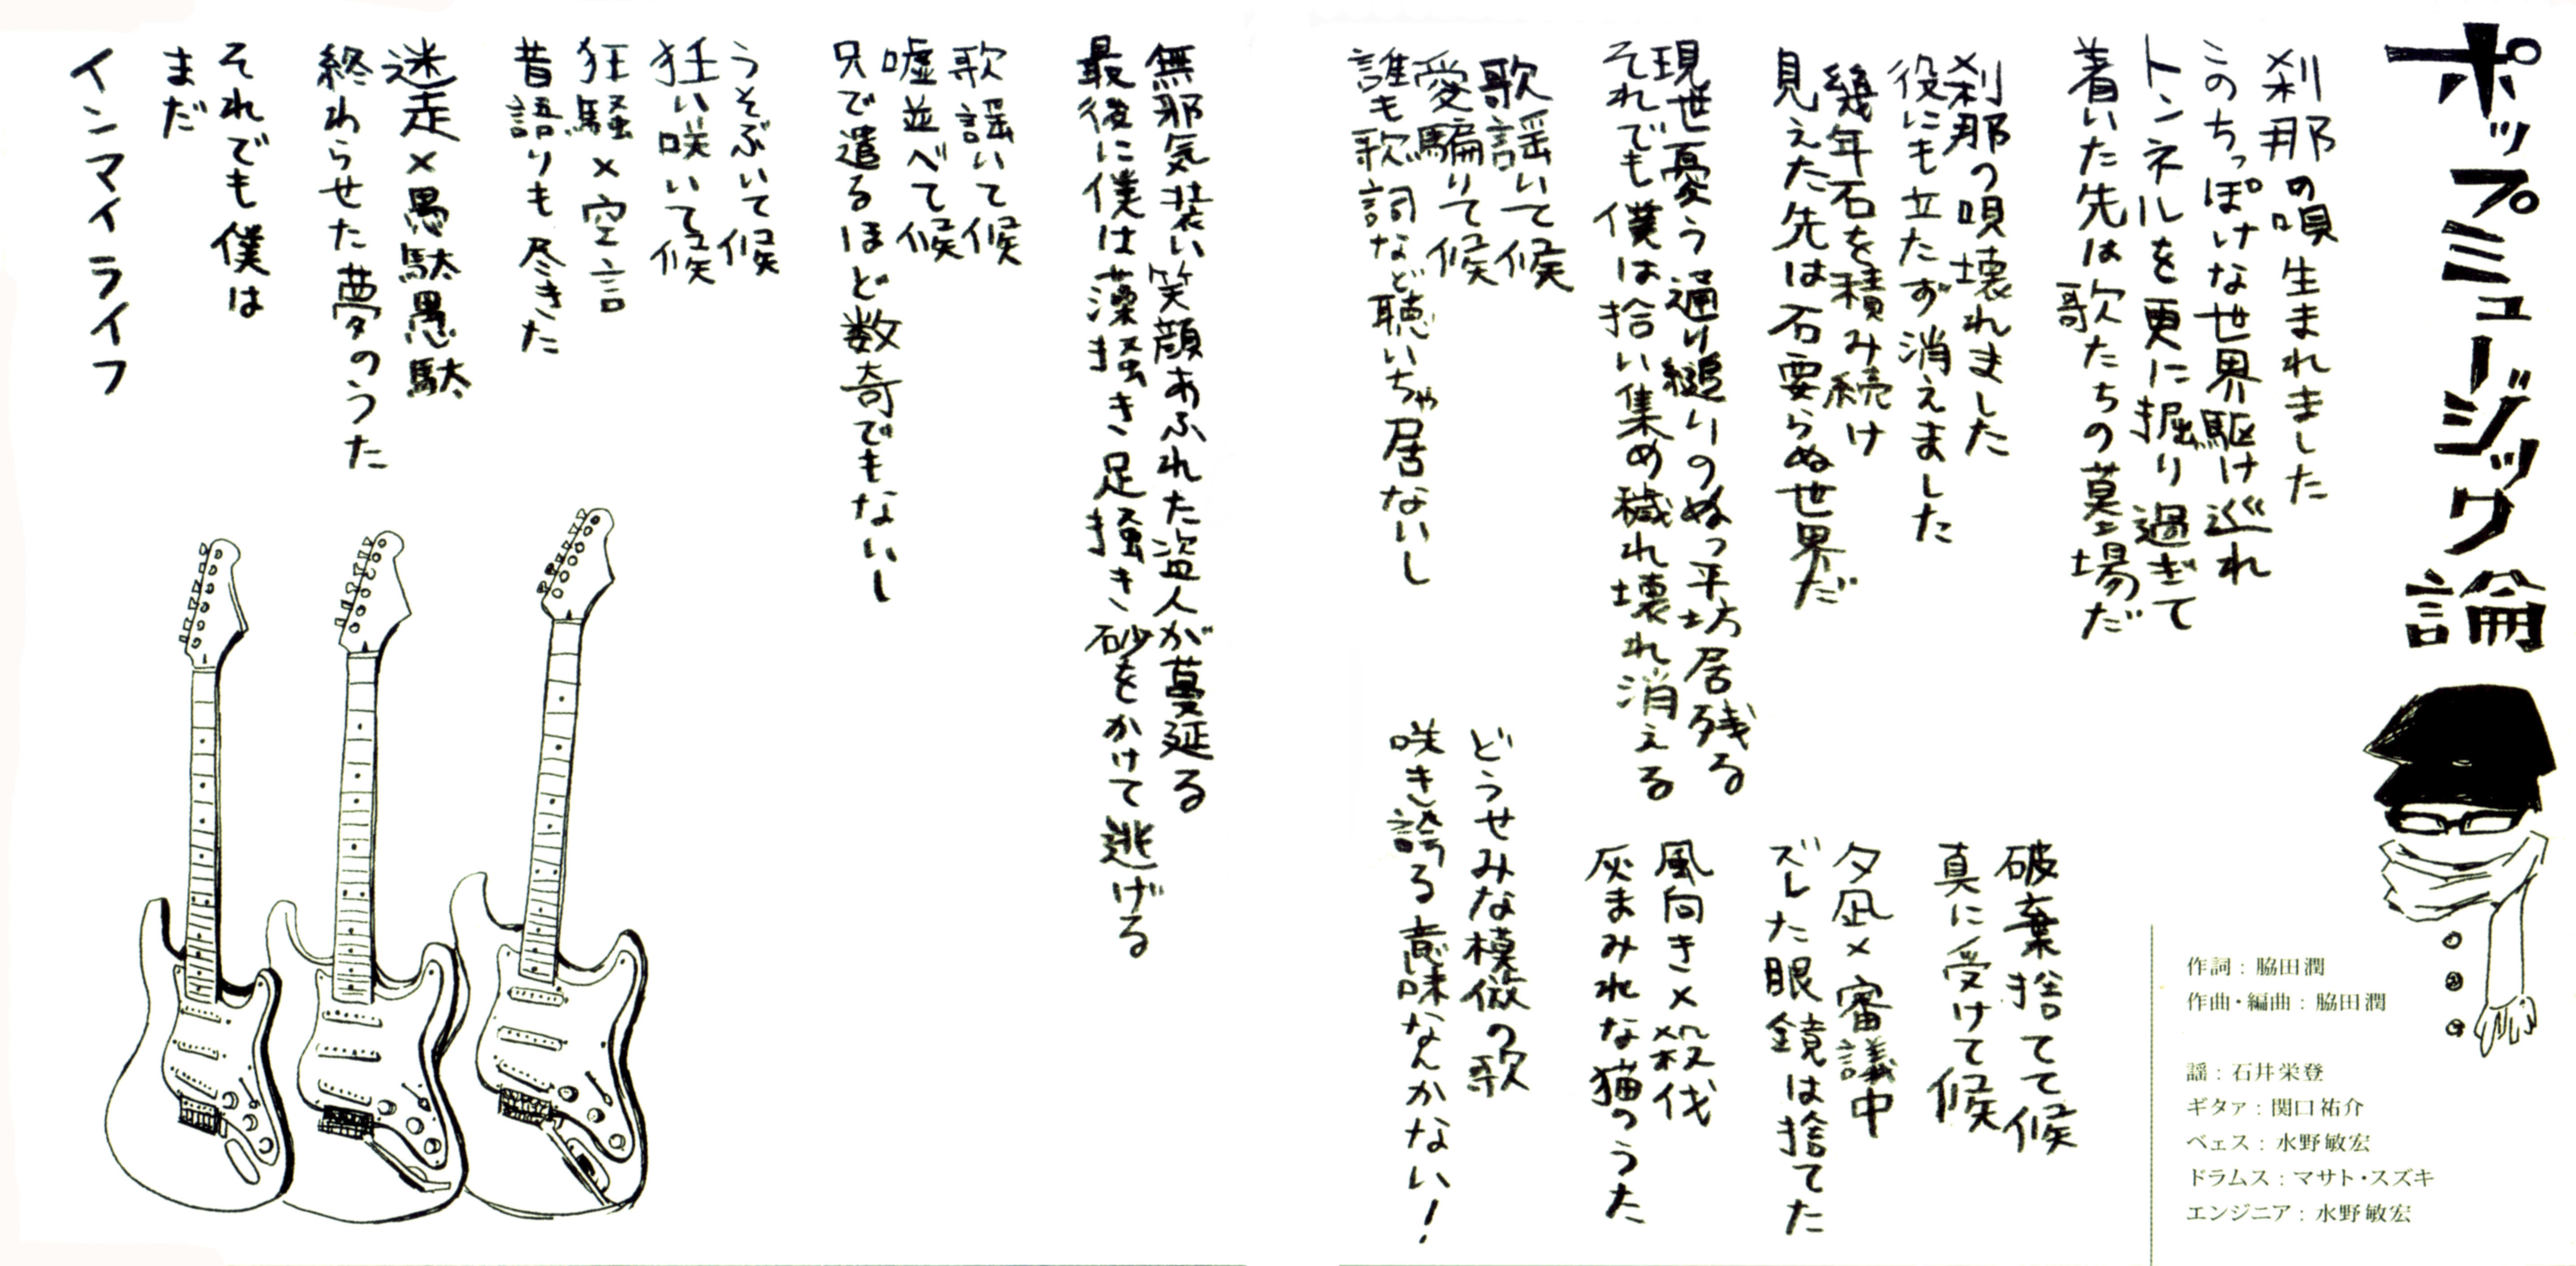 ポップミュージック論
刹那の唄生まれました
このちっぽけな世界駆け巡れ
トンネルを更に掘り過ぎて
着いた先は歌たちの墓場だ
刹那の唄壊れました
役にも立たず消えました
幾年石を積み続け
見えた先は石要らぬ世界だ
現世憂う通り縋りのぬっ平坊居残る
それでも僕は拾い集め穢れ壊れ消える
歌謡いて候
愛騙りて候
誰も歌詞など聴いちゃ居ないし
破棄捨てて候
真に受けて候
夕凪×審議中
ズレた眼鏡は捨てた
風向き×殺伐
灰まみれな猫のうた
どうせみな模倣の歌
咲き誇る意味なんかない！
作詞：脇田潤
作曲・編曲：脇田潤
謡：石井栄登
ギタァ：関口祐介
ベェス：水野敏宏
ドラムス：マサト・スズキ
エンジニア：水野敏宏
無邪気装い笑顔あふれた盗人が蔓延る
最後に僕は藻掻き足掻き砂をかけて逃げる
歌謡いて候
嘘並べて候
只で遣るほど数奇でもないし
うそぶいて候
狂い咲いて候
狂騒×空言
昔語りも尽きた
迷走×愚駄愚駄
終わらせた夢のうた
それでも僕は
まだ
インマイライフ